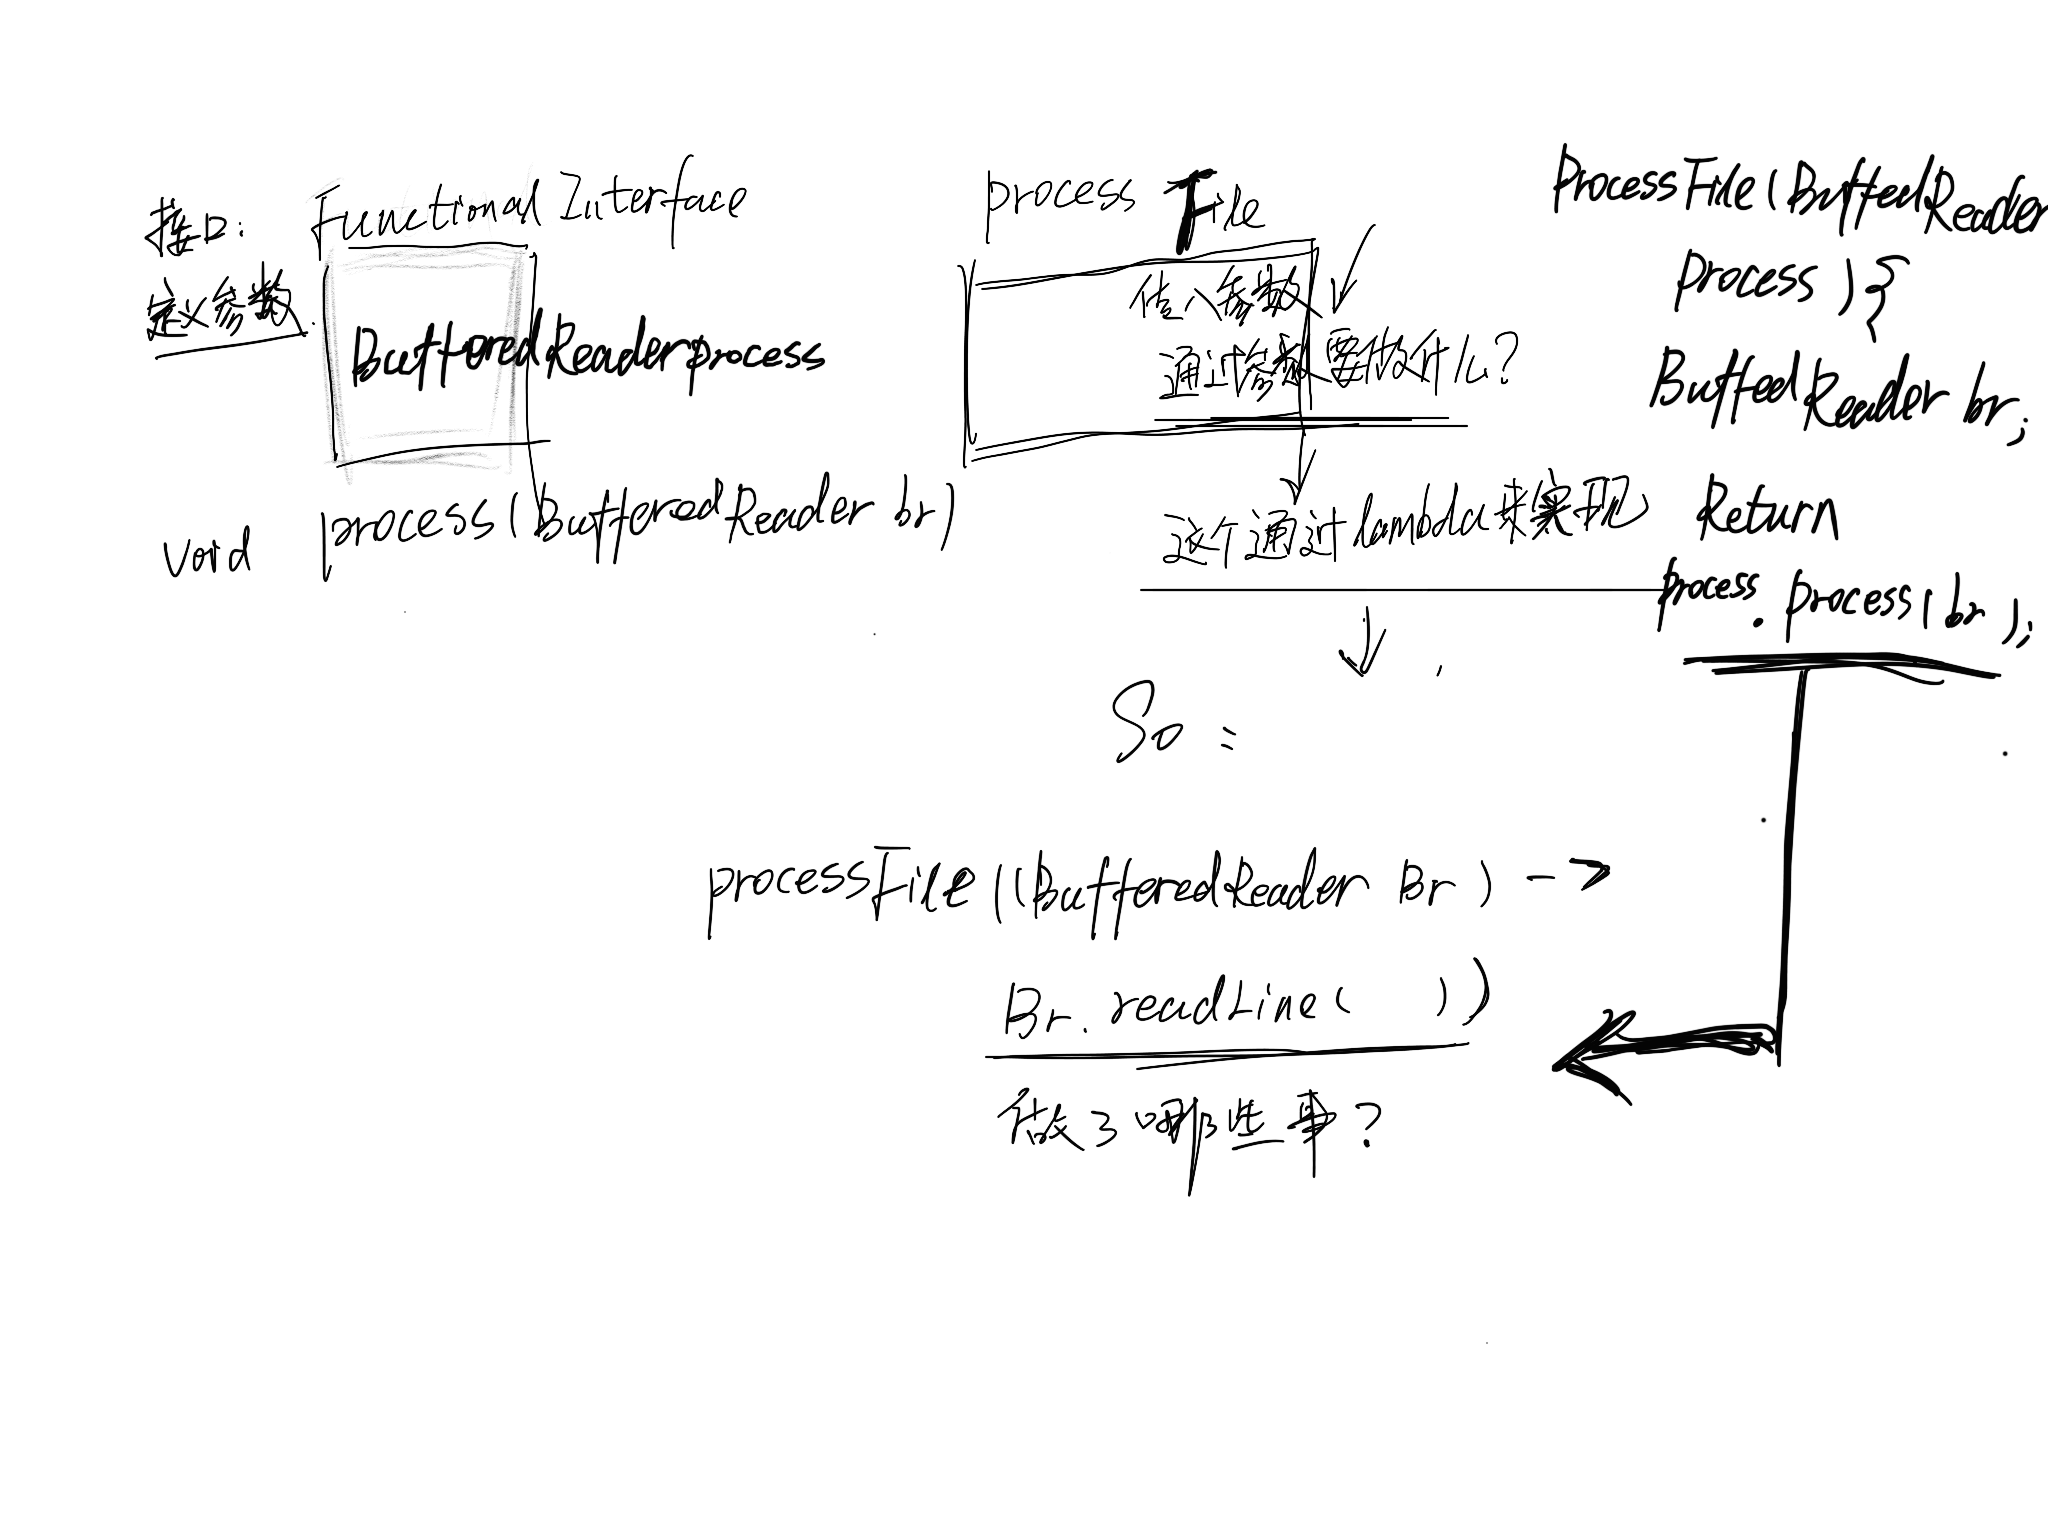 接口: Functional Interface
定义参数
BufferedReaderprocess
void process(BufferedReader br)
process File
传入参数
通过参数要做什么?
这个通过lambda来实现
So:
processFile((BufferedReader Br) ->
Br.readLine( ))
做了哪些事?
ProcessFile(BuffedReader
process){
BuffedReader br;
Return
process.process(br);